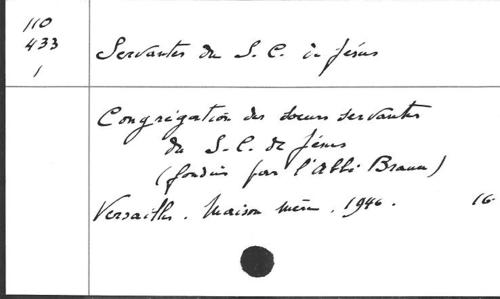 110
433
1
Servantes du S. C. de Jésus
Congrégation des soeurs servantes
du S. C. de Jésus
(fondées par l'Abbé Braun)
Versailles. Maison mère. 1946. 16